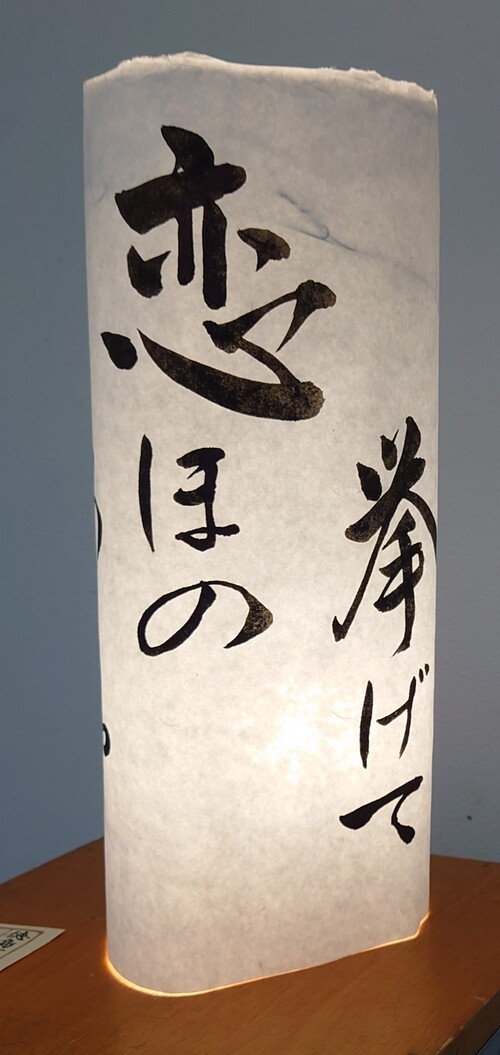 挙げて
恋ほの